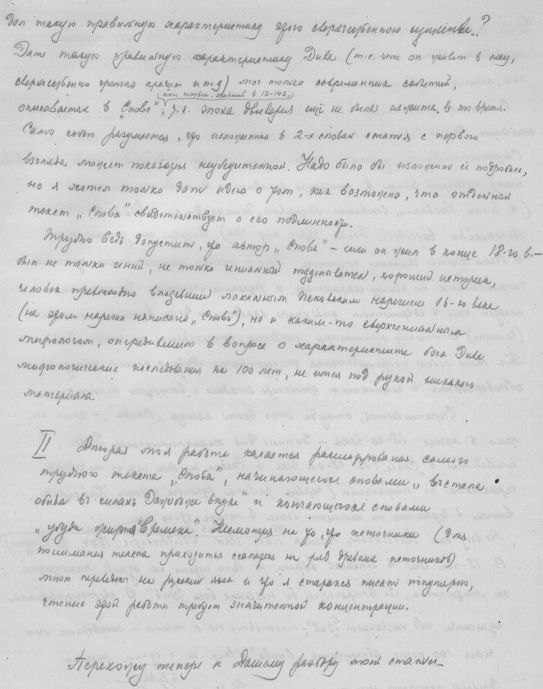 дал такую правильную характеристику этого сверхъестественного существа..?
Дать такую правильную характеристику Дива (т.е. что он живет в лесу,
сверхъестественно громко кричит и т.д) мог только современник событий,
(или поэт, живший в 13-14 в.)
описываемых в "Слове", т.к. эпоха двоеверия ещё не была изжита в то время.
Само собой разумеется, что изложенная в 2-х словах статья с первого
взгляда может показаться неубедительной. Надо было бы изложить её подробнее,
но я хотел только дать идею о том, как возможно, что отдельный
текст "Слова" свидетельствует о его подлинности.
Трудно ведь допустить, что автор "Слова" – если он жил в конце 18-го в.–
был не только гений, не только гениальный подделыватель, хороший историк,
человек превосходно владевший локальным Псковским наречием 16-го века
(на этом наречии написано "Слово"), но и каким-то сверхгениальным
мифологом, опередившим в вопросе о характеристике бога Дива
мифологические исследования на 100 лет, не имея под рукой никакого
материала.
II Вторая моя работа касается расшифрования самого
трудного текста "Слова", начинающегося словами "въстала
обида въ силахъ Дажьбожа внука" и кончающегося словами
"убуди жирня времена". Несмотря на то, что источники (для
понимания текста приходится ссылаться на ряд древних источников)
мною переведены на русский язык и что я старался писать популярно,
чтение этой работы требует значительной концентрации.
Перехожу теперь к Вашему разбору моей статьи.